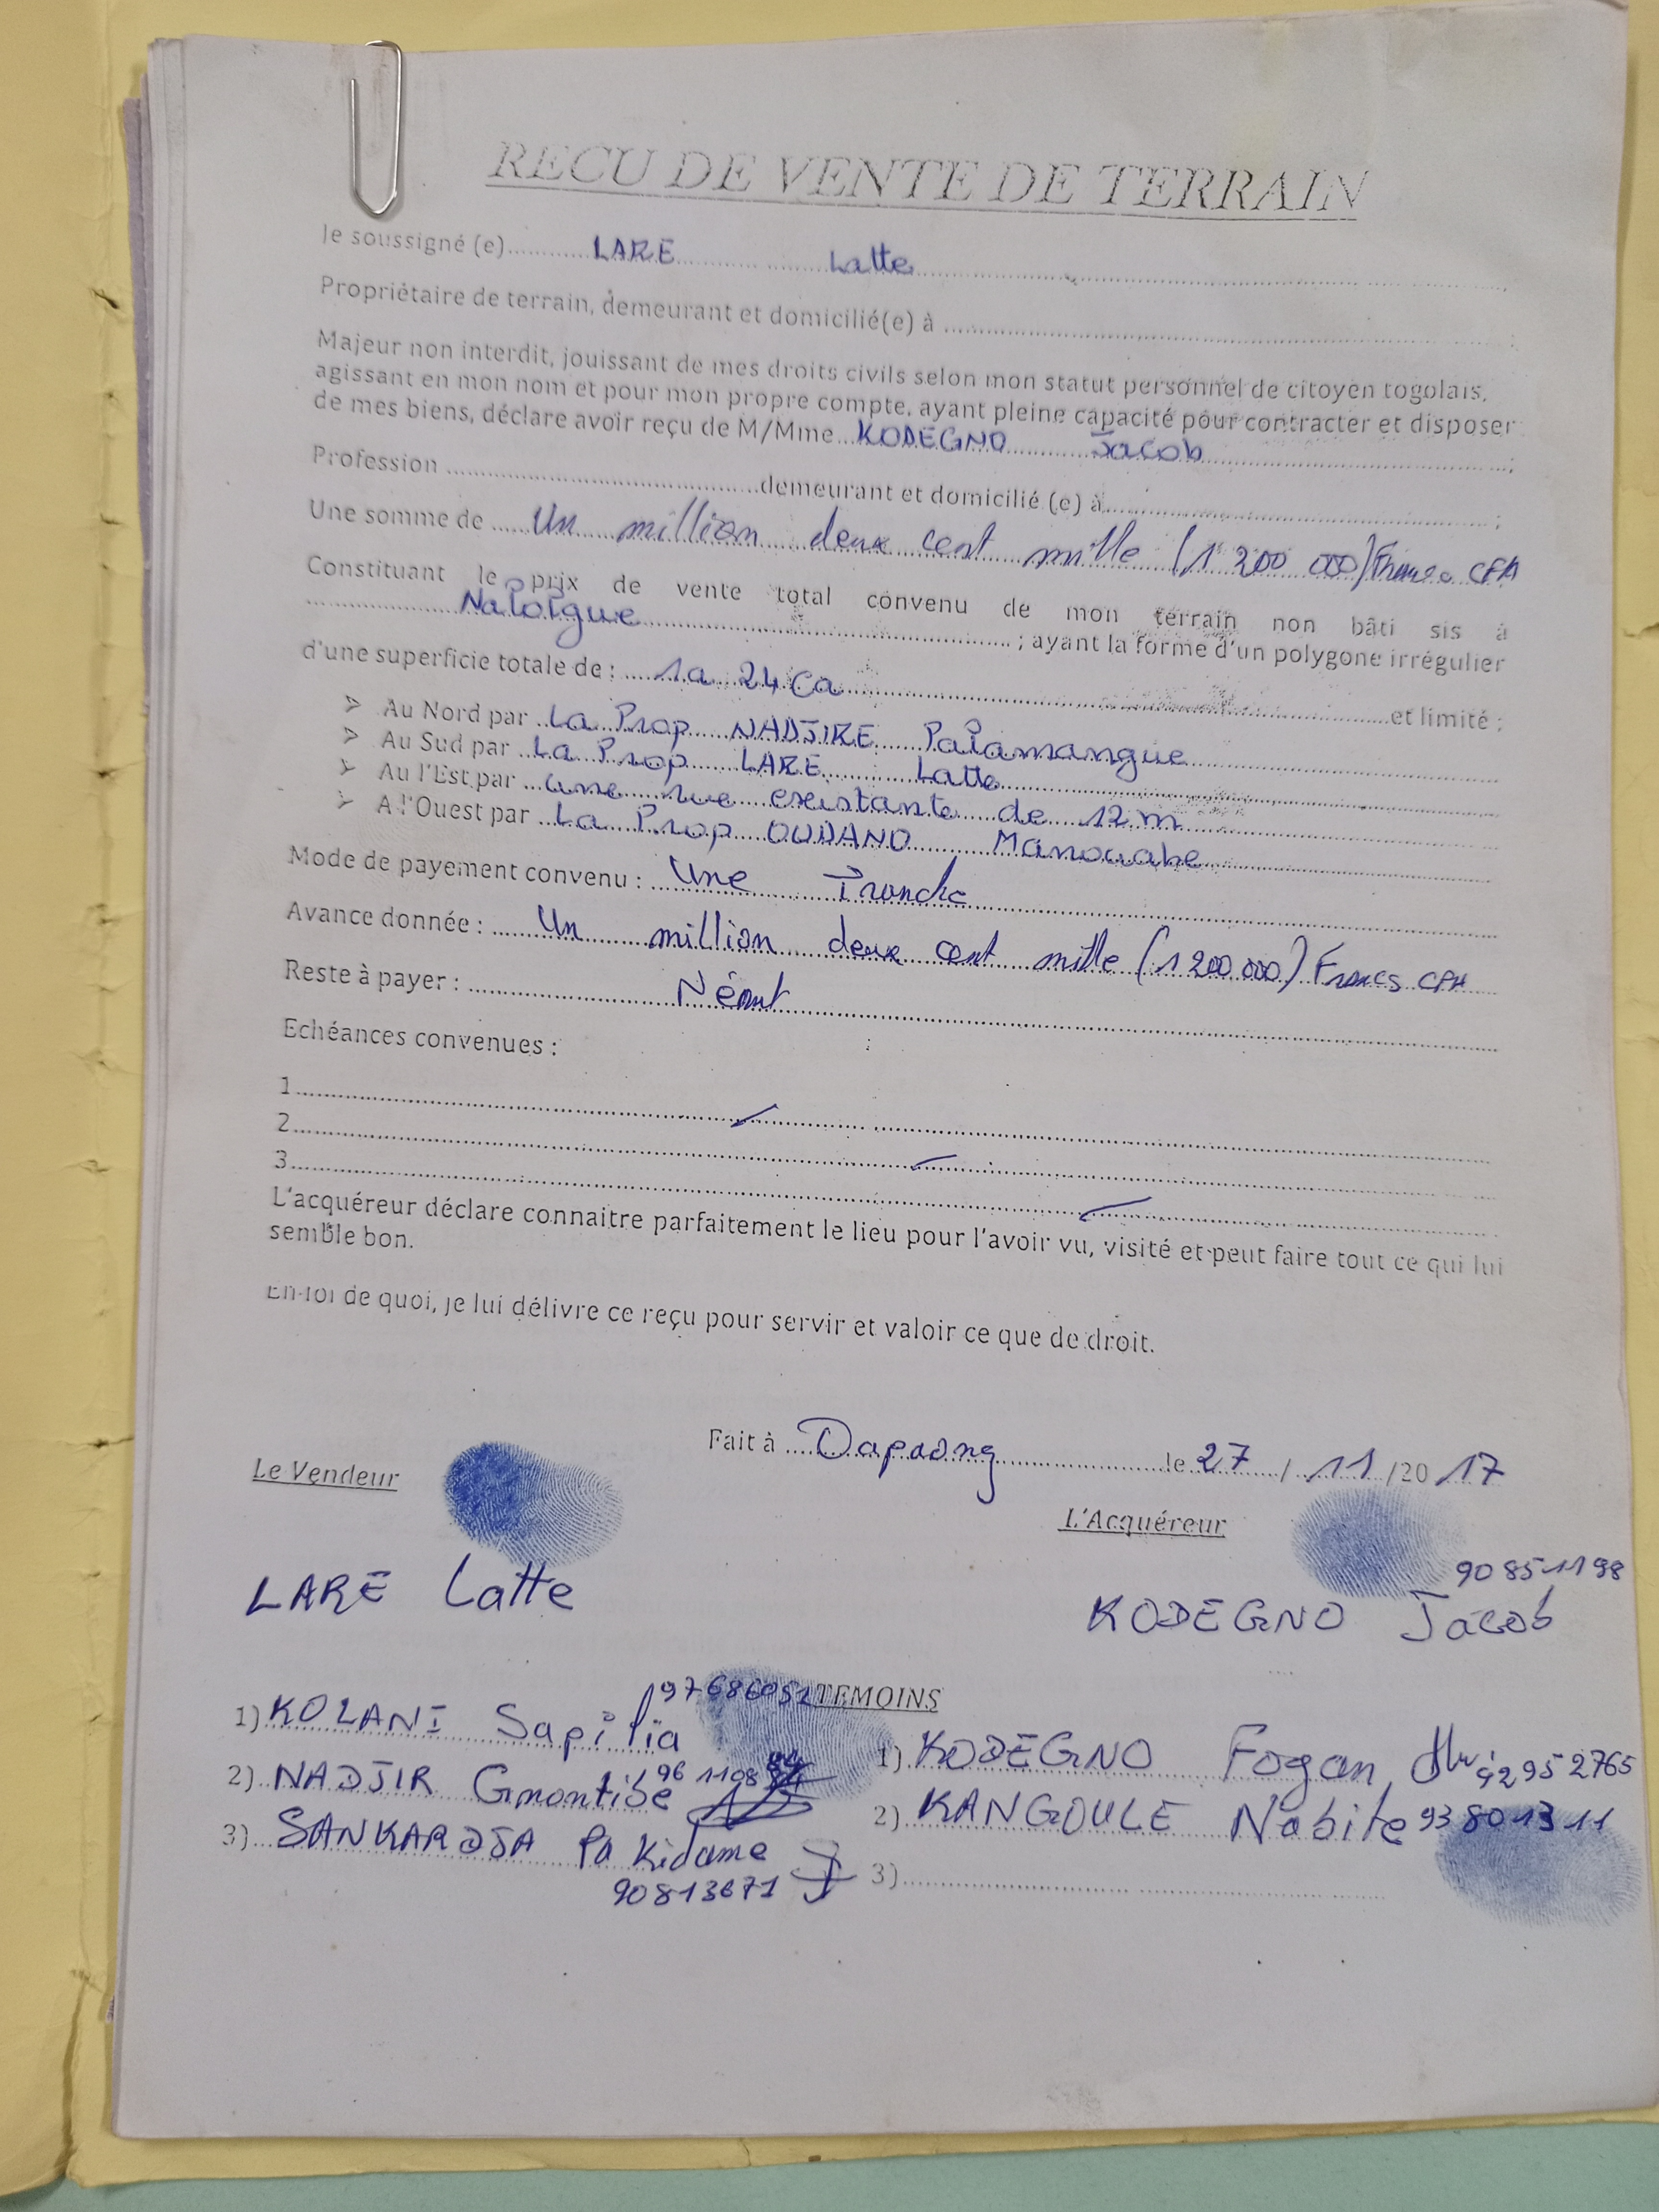 RECU DE VENTE DE TERRAIN
Je soussigné (e)............LARE............Latte............
Propriétaire de terrain, demeurant et domicilié(e) à ............;
Majeur non interdit, jouissant de mes droits civils selon mon statut personnel de citoyen togolais,
agissant en mon nom et pour mon propre compte, ayant pleine capacité pour contracter et disposer
de mes biens, déclare avoir reçu de M/Mme...KODEGNO............Jacob............;
Profession ............demeurant et domicilié (e) à............;
Une somme de ......Un million deux cent mille (1 200 000) Francs CFA
Constituant le prix de vente total convenu de mon terrain non bâti sis à
............Naloigue............; ayant la forme d'un polygone irrégulier
d'une superficie totale de : ....1a 24 Ca............et limité :
➢ Au Nord par ..La Prop NADJIRE Païamangue............
➢ Au Sud par ..La Prop LARE Latte............
➢ Au l'Est par ...une rue existante de 12 m............
➢ A l'Ouest par ..La Prop OUDANO Manouabe............
Mode de payement convenu : ....Une Tranche............
Avance donnée : ......Un million deux cent mille (1 200.000) Francs CFA
Reste à payer : ............Néant............
Echéances convenues :
1............
2............
3............
L'acquéreur déclare connaitre parfaitement le lieu pour l'avoir vu, visité et peut faire tout ce qui lui
semble bon.
En foi de quoi, je lui délivre ce reçu pour servir et valoir ce que de droit.
Fait à .....Dapaong............le 27 / 11 /20 17
Le Vendeur
L'Acquéreur
90851198
LARE Latte
KODEGNO Jacob
97686052 TEMOINS
1) KOLANI Sapilïa
1) KODEGNO Fogan 92952765
2) NADJIR Gmontibe 961108
2) KANGOULE Nabite 93801311
3) SANKARDJA Pakidame
90813671
3)............